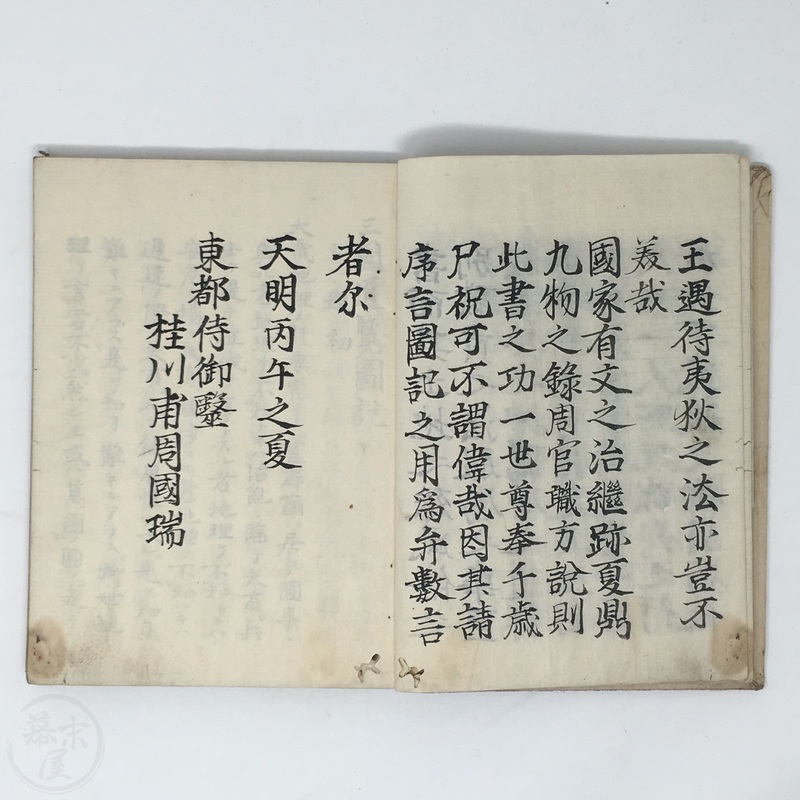 王遇待夷狄之法亦豈不
美哉
國家有文之治繼跡夏鼎
九物之錄周官職方說則
此書之功一世尊奉千歲
尸祝可不謂偉哉因其請
序言圖記之用爲弁數言
者尔
天明丙午之夏
東都侍御毉
桂川甫周國瑞
幕末屋